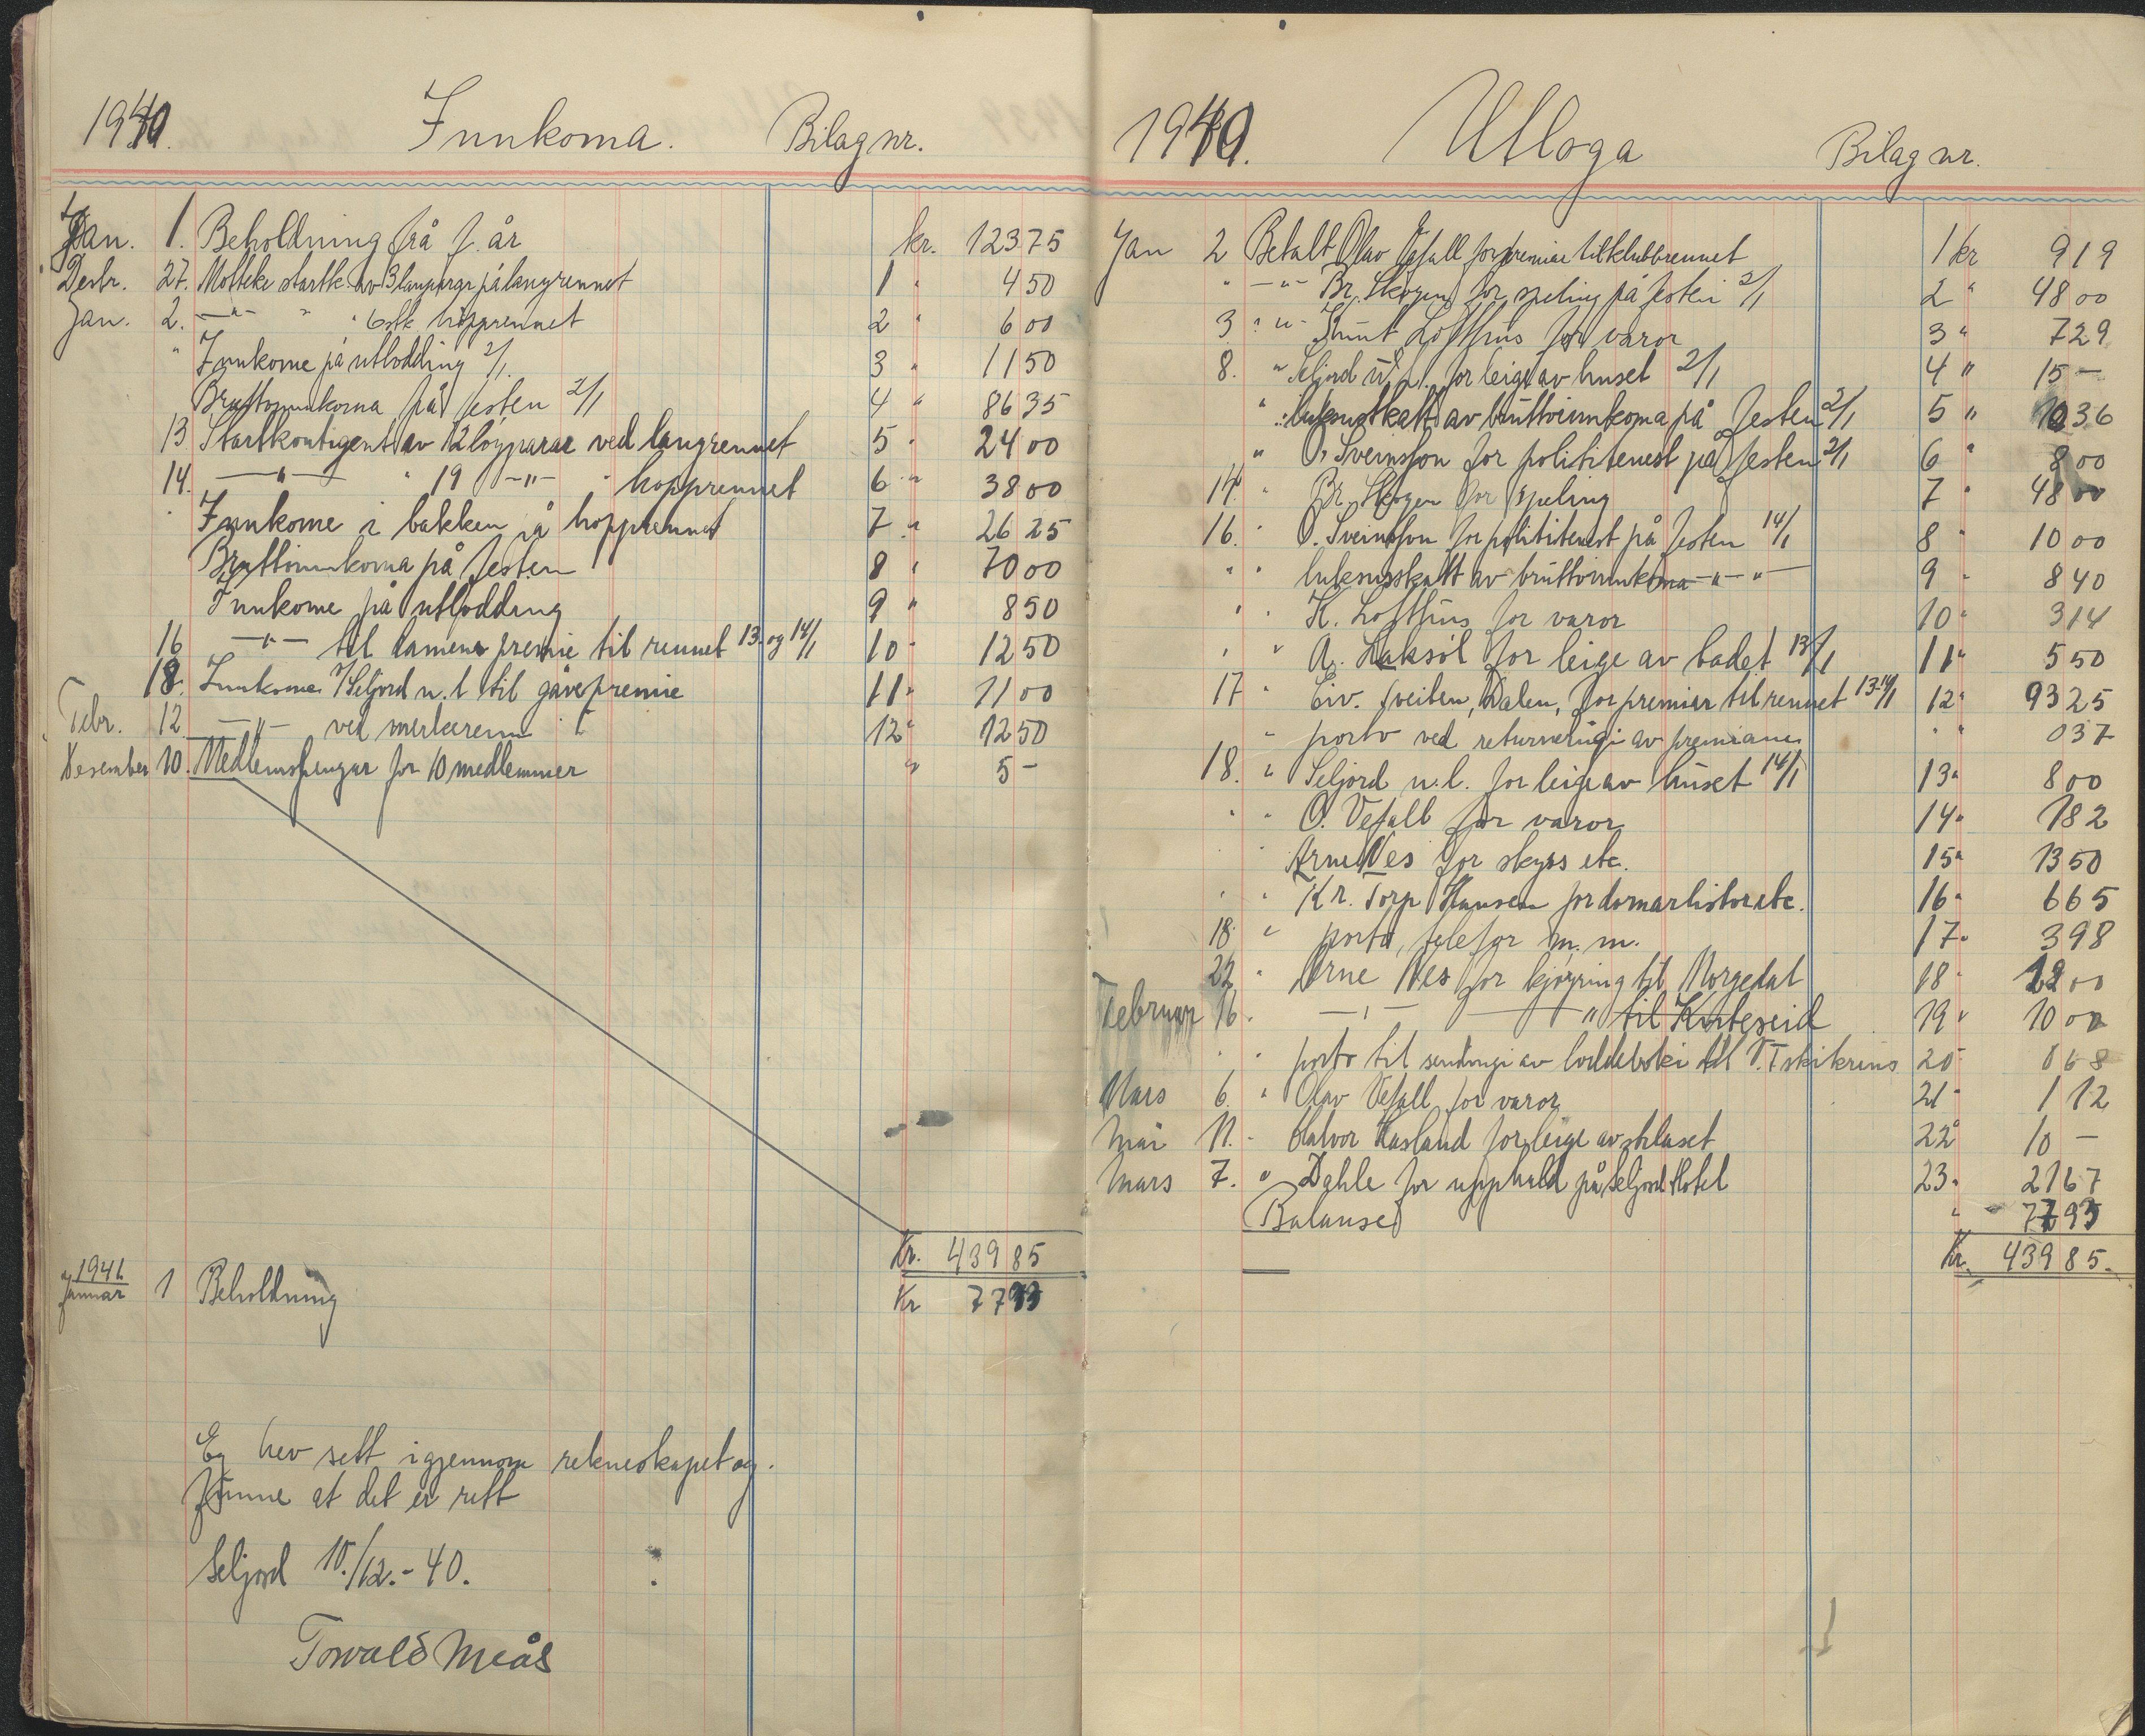 1940. Innkoma. Bilag nr.
Jan. 1. Beholdning frå f. år kr. 123 75
Desbr. 27. Motteke startk. av 3 på langrennet 1 " 4 50
Jan. 2. —"— " " 6 stk. hopprennet 2 " 6 00
" Innkome på utlodding 2/1. 3 " 11 50
Bruttoinnkoma på festen 2/1 4 " 86 35
13 Startkontigent av 12 løyparar ved langrennet 5 " 24 00
14. —"— " 19 —"— " hopprennet 6 " 38 00
" Innkome i bakken på hopprennet 7 " 26 25
Bruttoinnkoma på festen 8 " 70 00
Innkome på utlodding 9 " 8 50
16 —"— til damenes premie til rennet 13. og 14/1 10 " 12 50
18. Innkome f/ Seljord u.l. til gåvepremie 11 " 11 00
Febr. 12. —"— ved merkerenn 12 " 12 50
Desember 10. Medlemspengar for 10 medlemmer " 5 -
Kr. 439 85
1941
Januar 1 Beholdning Kr 77 93
Eg hev sett igjennom rekneskapet og
finne at det er rett
Seljord 10./12.-40.
Torvald Meås
1940. Utloga Bilag nr.
Jan 2 Betalt Olav Vefall for premiar til klubbrennet 1 kr 9 19
" —"— Br. Skogen for speling på festen 2/1 2 " 48 00
3 " "- Knut Lofthus for varor 3 " 7 29
8. " Seljord u.l. for leige av huset 2/1 4 " 15 —
" " luksusskatt av bruttoinnkoma på festen 2/1 5 " 10 36
" O. Sveinsson for polititenest på festen 2/1 6 " 8 00
14. " Br. Skogen for speling 7 " 48 00
16. " O. Sveinsson for polititenest på festen 14/1 8 " 10 00
" " luksusskatt av bruttoinnkoma —"— " 9 " 8 40
" " K. Lofthus for varor 10 " 3 14
" " A. Laksól for leige av badet 13/1 11 " 5 50
17 " Eiv. Sveiten, Dalen, for premier til rennet 13-14/1 12 " 93 25
" porto ved returnering av premiane " " 0 37
18. " Seljord u.l. for leige av huset 14/1 13 " 8 00
" " O. Vefall for varor 14 " 1 82
" Arne Nes for skyss etc. 15 " 13 50
" " Kr. Torp Hansen for domarlistor etc. 16 " 6 65
18. " porto, telefon m. m. 17 " 3 98
22 " Arne Nes for kjøyring til Morgedal 18 " 12 00
Februar 16. —"— —"— " til Kviteseid 19 " 10 00
" " porto til sending av loddebøker til V.T skikrins 20 " 0 68
Mars 6. " Olav Vefall for varor 21 " 1 12
Mai 11. " Halvor Hasland for leige av huset 22 " 10 —
Mars 7. " Dahle for upphald på Seljord Hotel 23 " 21 67
Balanse " 77 93
Kr. 439 85.